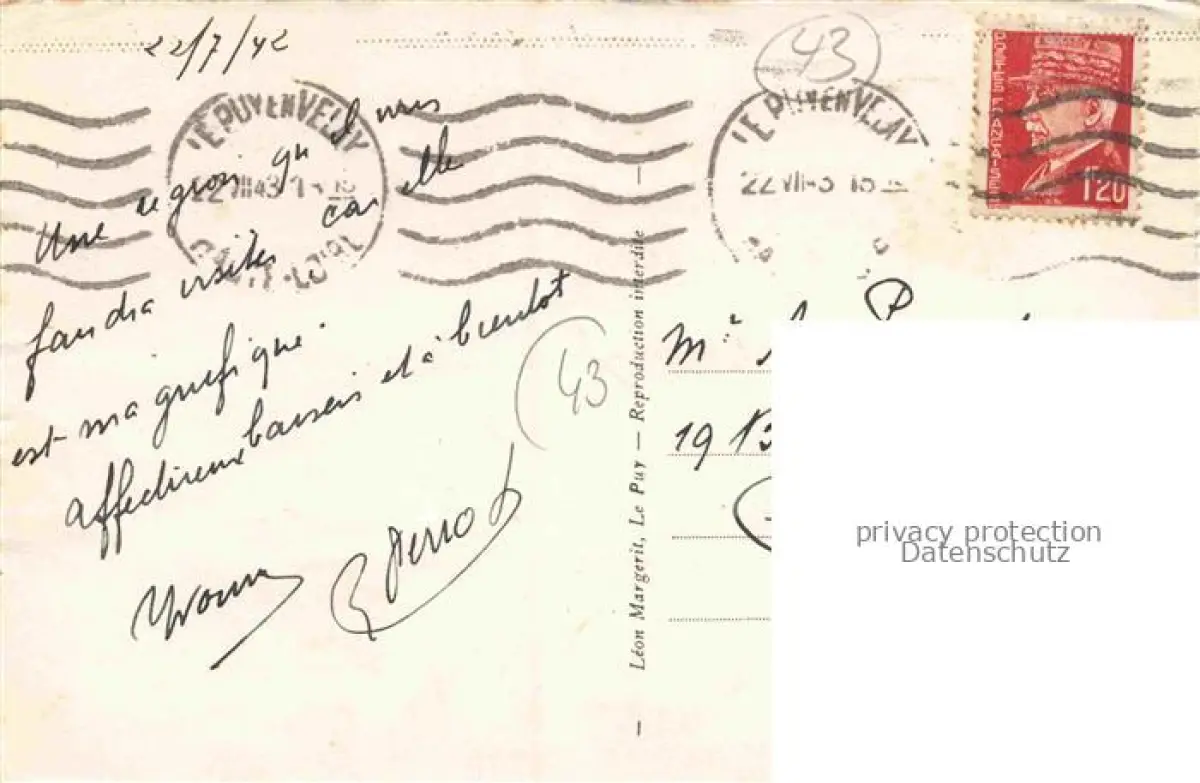 22/7/42
43
LE PUY EN VELAY
22 VII 43
LE PUY EN VELAY
22 VII 43 18
POSTES FRANÇAISES
1f20
Une région qu'il vous
faudra visiter car elle
est magnifique.
Affectueux baisers et à bientôt
Yvonne
43
Léon Margerit, Le Puy — Reproduction interdite
19
privacy protection
Datenschutz